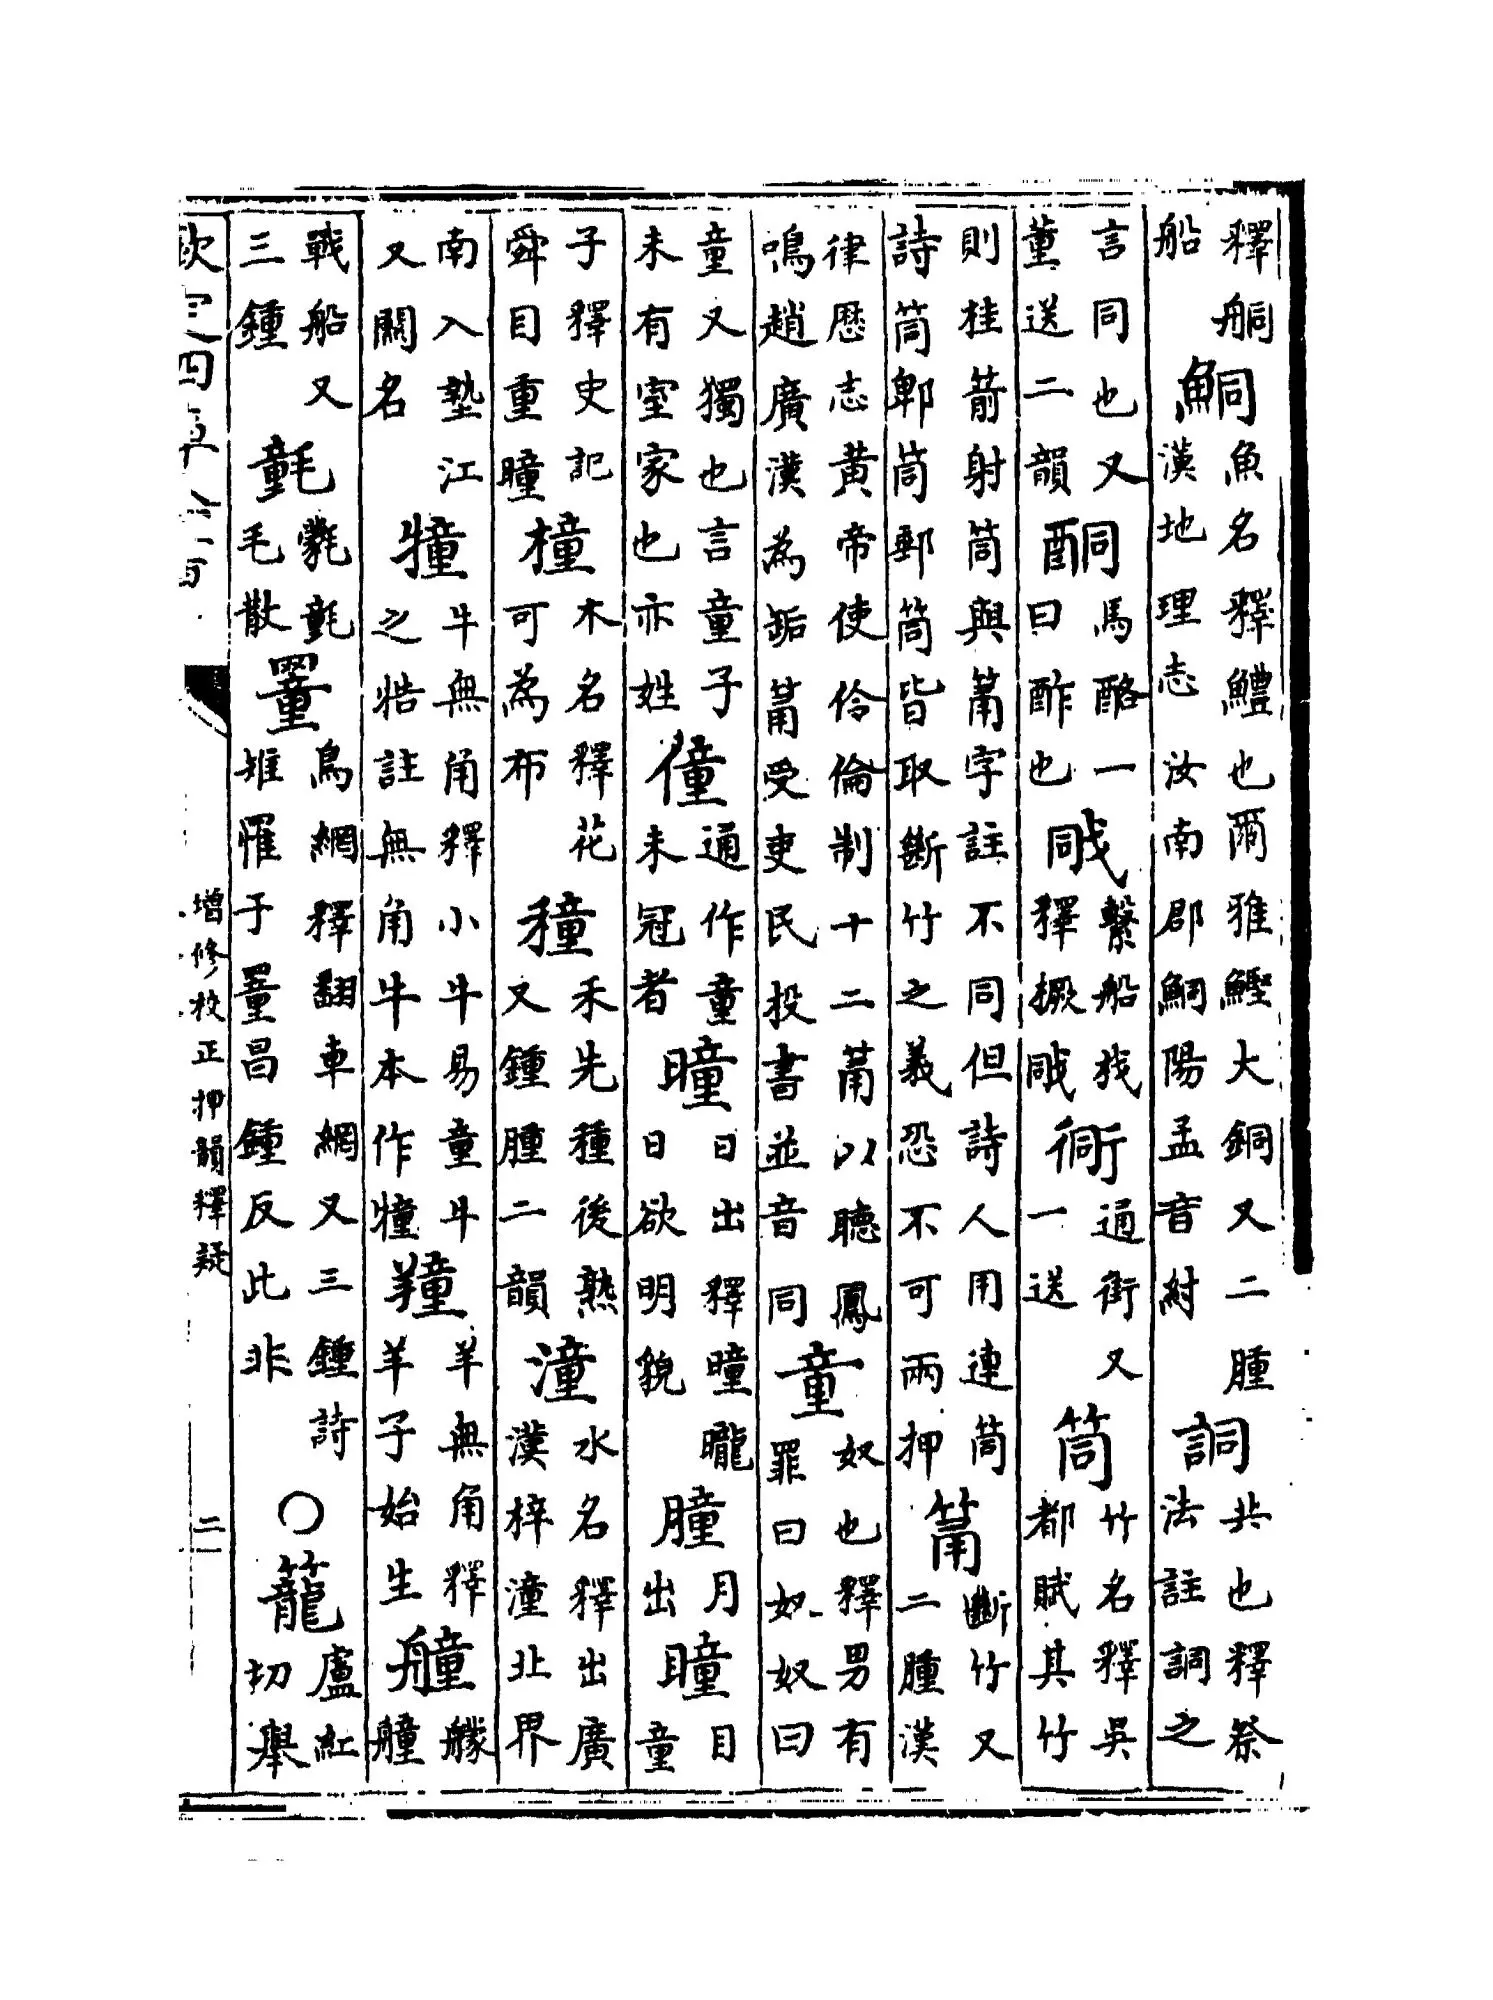 釋舸船鮦魚名釋鱧也爾雅鰹大鮦又二腫漢地理志汝南郡鮦陽孟音紂詷共也釋祭法註詷之
言同也又董送二韻酮馬酪一曰酢也戙繫船栈釋撅戙衕通街又一送筒竹名釋吳都賦其竹
則桂箭射筒與筩字註不同但詩人用連筒詩筒郫筒郵筒皆取斷竹之義恐不可兩押筩斷竹又二腫漢
律歷志黄帝使伶倫制十二筩以聽鳳鳴趙廣漢為缿筩受吏民投書並音同童奴也釋男有罪曰奴奴曰
童又獨也言童子未有室家也亦姓僮通作童未冠者曈日出釋曈曨日欲明貌朣月出瞳目童
子釋史記舜目重瞳橦木名釋花可為布穜禾先種後熟又鍾腫二韻潼水名釋出廣漢梓潼北界
南入墊江又關名犝牛無角釋小牛易童牛之牿註無角牛本作犝𦏆羊無角釋羊子始生艟艨艟
戰船又三鍾氃氋氃毛散罿鳥網釋翻車網又三鍾詩雉罹于罿昌鍾反此非○籠盧紅切舉
欽定四庫全書
增修校正押韻釋疑
二